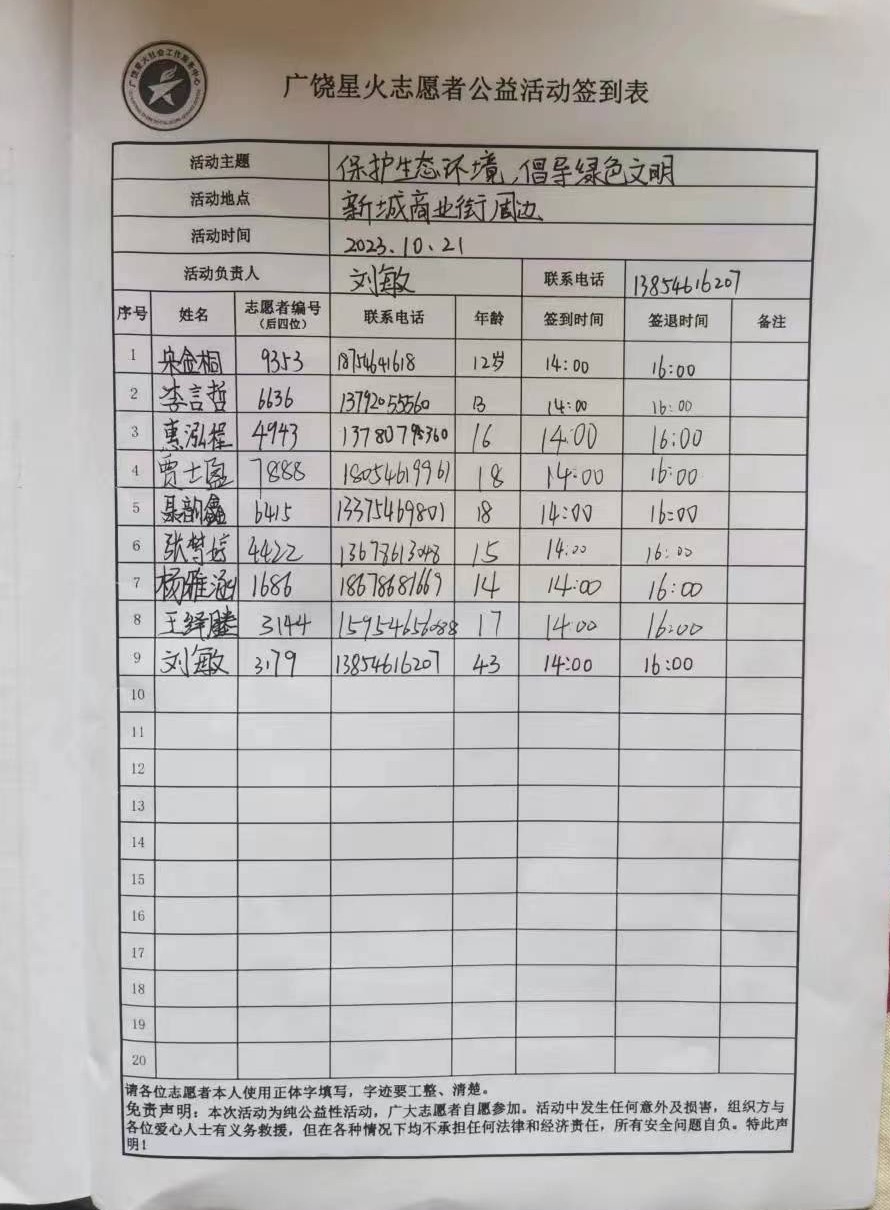 广饶星火社会工作服务中心
广饶星火志愿者公益活动签到表
活动主题 保护生态环境,倡导绿色文明
活动地点 新城商业街周边
活动时间 2023.10.21
活动负责人 刘敏 联系电话 13854616207
序号 姓名 志愿者编号（后四位） 联系电话 年龄 签到时间 签退时间 备注
1 宋金桐 9353 18754641618 12岁 14:00 16:00
2 李言哲 6636 13792055560 13 14:00 16:00
3 惠泓程 4943 13780795360 16 14:00 16:00
4 贾士盈 7888 18054619961 18 14:00 16:00
5 聂韵鑫 6415 13375469801 18 14:00 16:00
6 张梦婷 4422 13678613048 15 14:00 16:00
7 杨雅涵 1686 18678681669 14 14:00 16:00
8 王绎滕 3144 15954656088 17 14:00 16:00
9 刘敏 3179 13854616207 43 14:00 16:00
10
11
12
13
14
15
16
17
18
19
20
请各位志愿者本人使用正体字填写，字迹要工整、清楚。
免责声明：本次活动为纯公益性活动，广大志愿者自愿参加。活动中发生任何意外及损害，组织方与
各位爱心人士有义务救援，但在各种情况下均不承担任何法律和经济责任，所有安全问题自负。特此声
明！